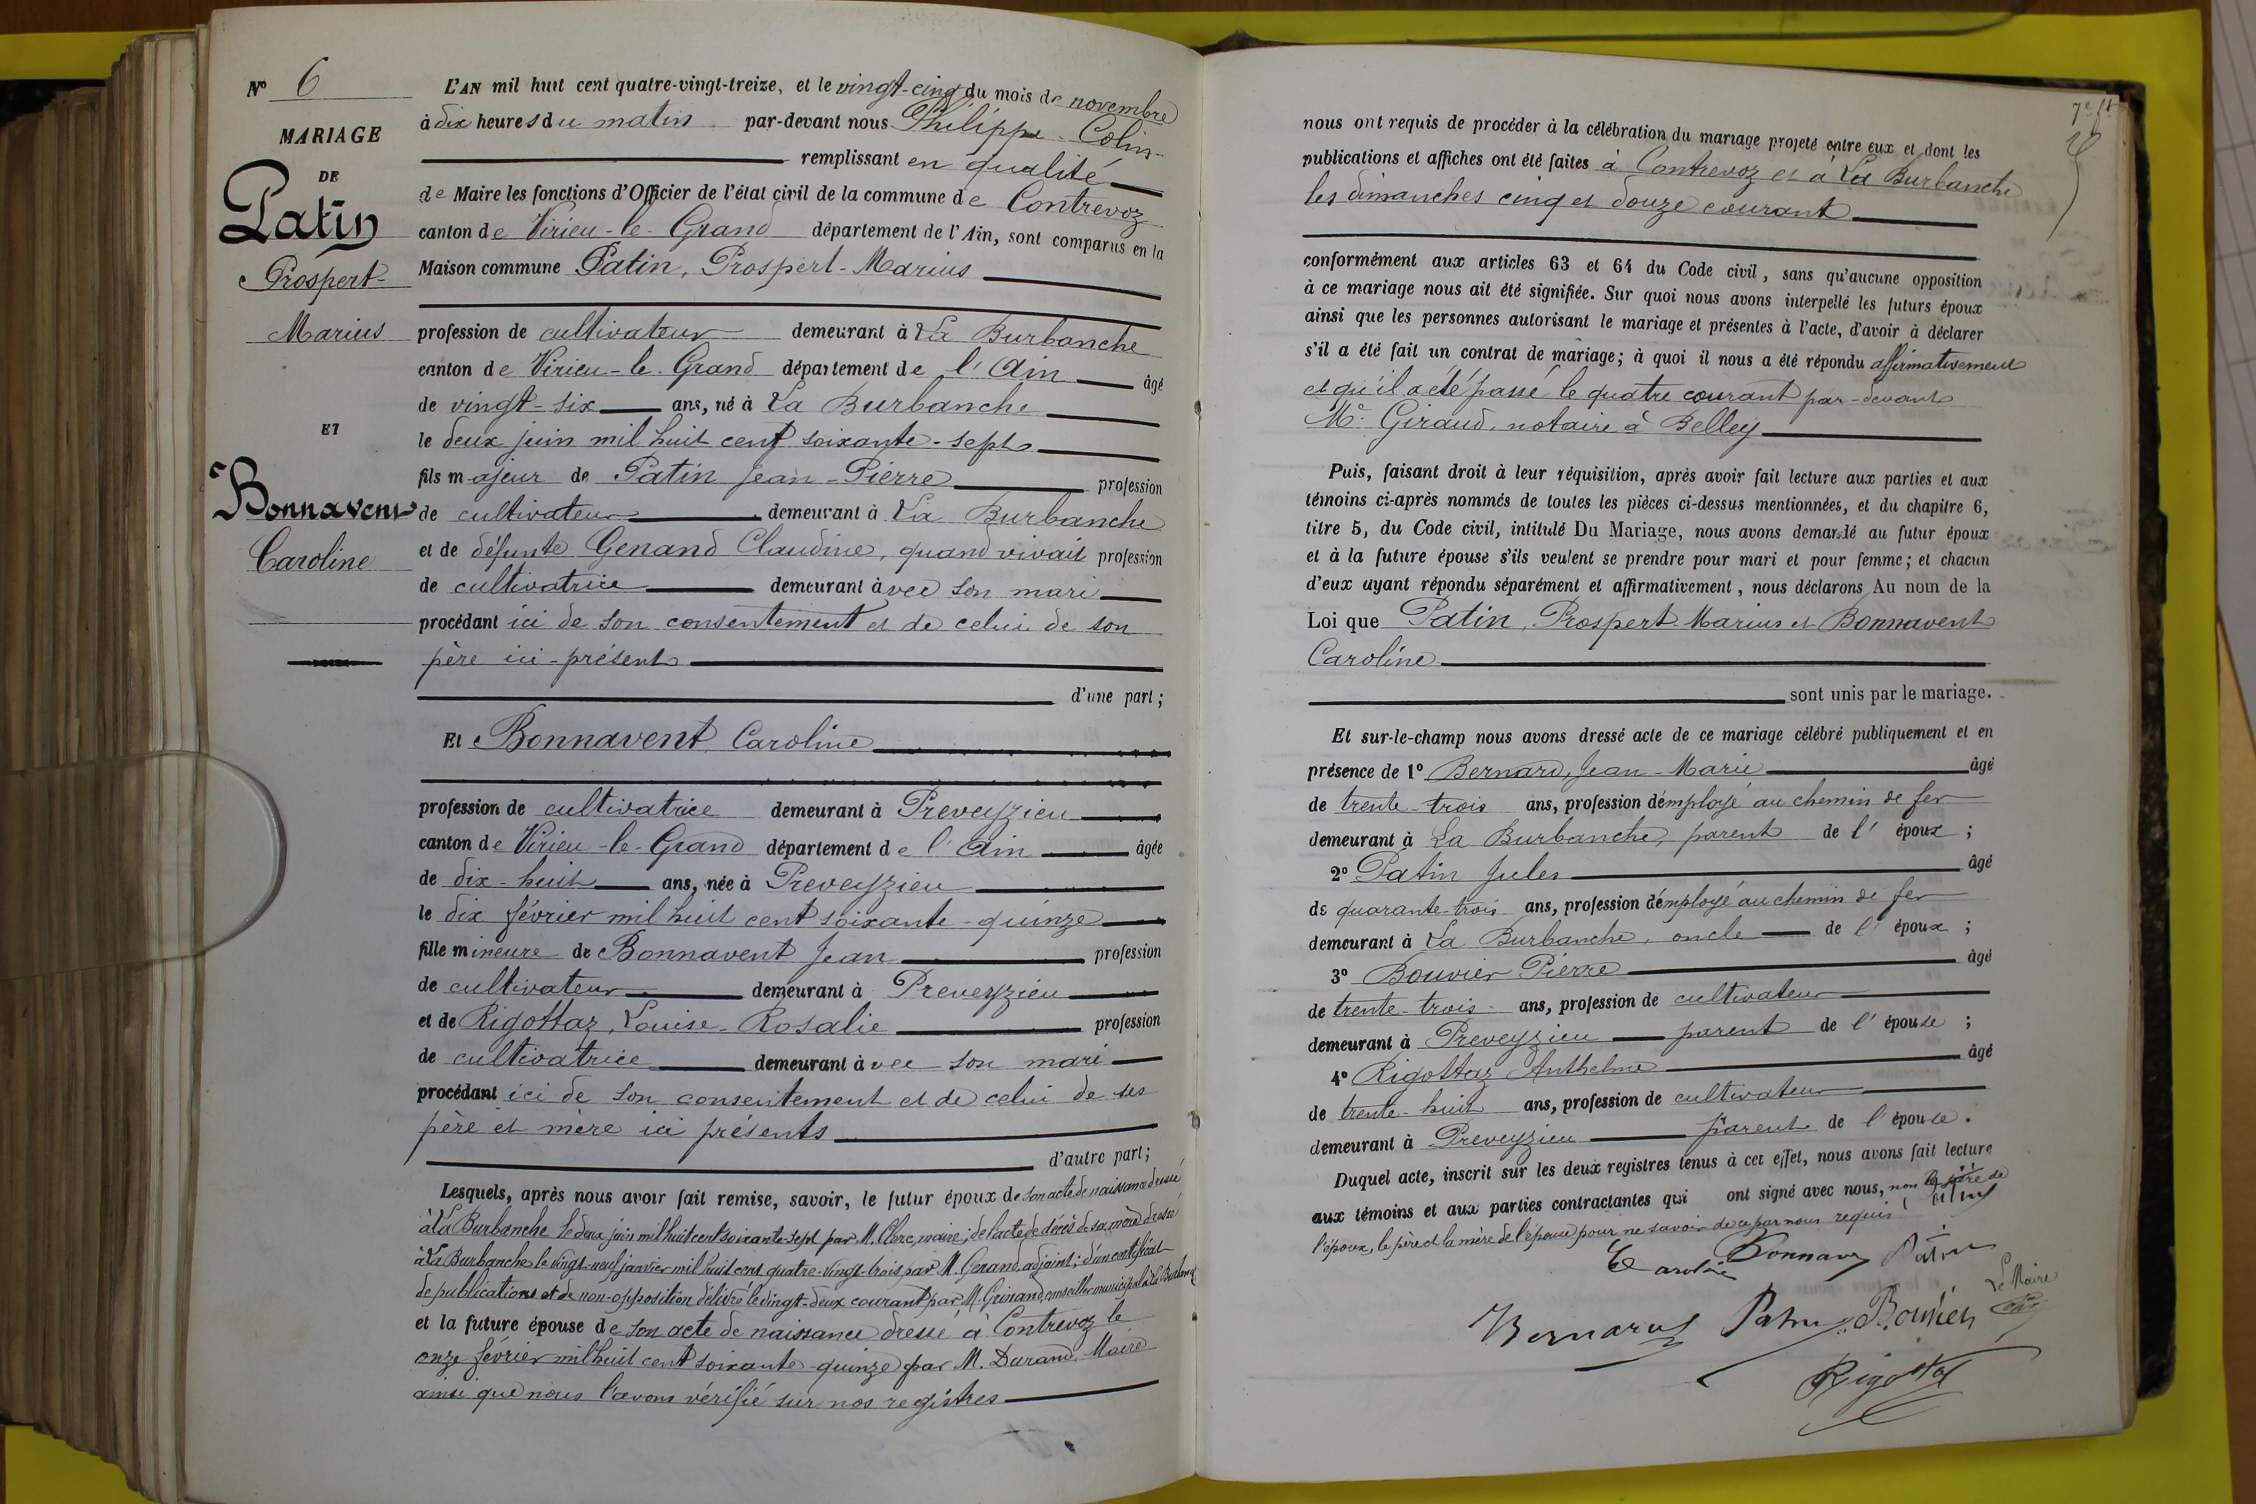 N° 6
MARIAGE
DE
Patin
Prospert-
Marius
ET
Bonnavent
Caroline
L'AN mil huit cent quatre-vingt-treize, et le vingt-cinq du mois de novembre
à dix heures du matin par-devant nous Philippe Colin
remplissant en qualité
de Maire les fonctions d'Officier de l'état civil de la commune de Contrevoz
canton de Virieu-le-Grand département de l'Ain, sont comparus en la
Maison commune Patin, Prospert-Marius
profession de cultivateur demeurant à La Burbanche
canton de Virieu-le-Grand département de l'Ain âgé
de vingt-six ans, né à La Burbanche
le deux juin mil huit cent soixante-sept
fils majeur de Patin Jean-Pierre profession
de cultivateur demeurant à La Burbanche
et de défunte Genand Claudine, quand vivait profession
de cultivatrice demeurant avec son mari
procédant ici de son consentement et de celui de son
père ici-présent
d'une part;
Et Bonnavent Caroline
profession de cultivatrice demeurant à Preveyzieu
canton de Virieu-le-Grand département de l'Ain âgée
de dix-huit ans, née à Preveyzieu
le dix février mil huit cent soixante-quinze
fille mineure de Bonnavent Jean profession
de cultivateur demeurant à Preveyzieu
et de Rigottaz, Louise-Rosalie profession
de cultivatrice demeurant avec son mari
procédant ici de son consentement et de celui de ses
père et mère ici présents
d'autre part;
Lesquels, après nous avoir fait remise, savoir, le futur époux de son acte de naissance dressé
à La Burbanche le deux juin mil huit cent soixante-sept par M. Clerc, maire; de l'acte de décès de sa mère dressé
à La Burbanche le vingt-neuf janvier mil huit cent quatre-vingt-trois par M. Genand, adjoint; d'un certificat
de publications et de non-opposition délivré le vingt-deux courant par M. Genand, conseiller municipal à La Burbanche
et la future épouse de son acte de naissance dressé à Contrevoz le
onze février mil huit cent soixante-quinze par M. Durand, Maire
ainsi que nous l'avons vérifié sur nos registres
7e ft
nous ont requis de procéder à la célébration du mariage projeté entre eux et dont les
publications et affiches ont été faites à Contrevoz et à La Burbanche
les dimanches cinq et douze courant
conformément aux articles 63 et 64 du Code civil, sans qu'aucune opposition
à ce mariage nous ait été signifiée. Sur quoi nous avons interpellé les futurs époux
ainsi que les personnes autorisant le mariage et présentes à l'acte, d'avoir à déclarer
s'il a été fait un contrat de mariage; à quoi il nous a été répondu affirmativement
et qu'il a été passé le quatre courant par-devant
Me Giraud, notaire à Belley
Puis, faisant droit à leur réquisition, après avoir fait lecture aux parties et aux
témoins ci-après nommés de toutes les pièces ci-dessus mentionnées, et du chapitre 6,
titre 5, du Code civil, intitulé Du Mariage, nous avons demandé au futur époux
et à la future épouse s'ils veulent se prendre pour mari et pour femme; et chacun
d'eux ayant répondu séparément et affirmativement, nous déclarons Au nom de la
Loi que Patin, Prospert-Marius et Bonnavent
Caroline
sont unis par le mariage.
Et sur-le-champ nous avons dressé acte de ce mariage célébré publiquement et en
présence de 1° Bernard, Jean-Marie âgé
de trente-trois ans, profession d'employé au chemin de fer
demeurant à La Burbanche, parent de l'époux;
2° Patin Jules âgé
de quarante-trois ans, profession d'employé au chemin de fer
demeurant à La Burbanche, oncle de l'époux;
3° Bouvier Pierre âgé
de trente-trois ans, profession de cultivateur
demeurant à Preveyzieu parent de l'épouse;
4° Rigottaz Anthelme âgé
de trente-huit ans, profession de cultivateur
demeurant à Preveyzieu parent de l'épouse.
Duquel acte, inscrit sur les deux registres tenus à cet effet, nous avons fait lecture
aux témoins et aux parties contractantes qui ont signé avec nous, non le père de
l'époux, le père et la mère de l'épouse pour ne savoir de ce par nous requis
Caroline Bonnav Patin
Le Maire
Bernard Patin Bouvier
Rigottaz